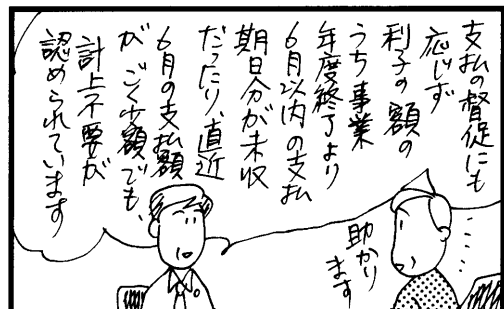 支払の督促にも
応じず
利子の額の
うち事業
年度終了より
6月以内の支払
期日分が未収
だったり、直近
6月の支払額
がごく少額でも、
計上不要が
認められています
助かり
ます